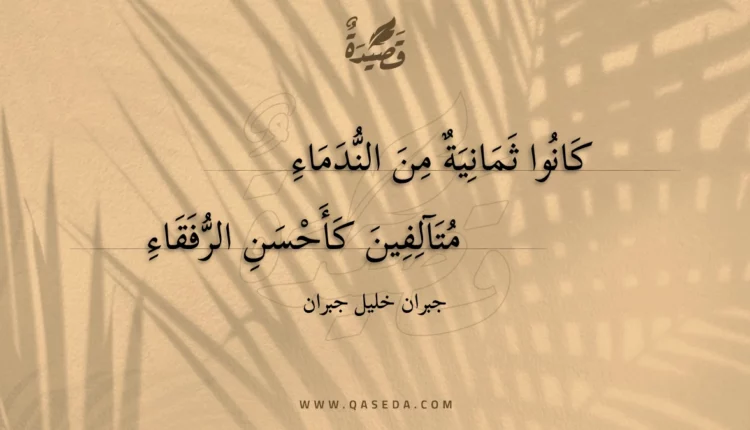 قَصِيْدَةٌ
كَانُوا ثَمَانِيَةٌ مِنَ النُّدَمَاءِ
مُتَآلِفِينَ كَأَحْسَنِ الرُّفَقَاءِ
جبران خليل جبران
WWW.QASEDA.COM